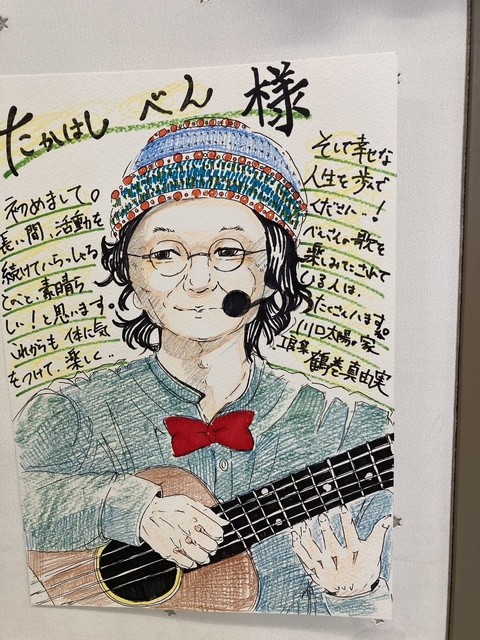 たかはし べん 様
初めまして。
長い間、活動を
続けていらっしゃる
とのこと、素晴ら
しい！と思います。
これからも 体に気
をつけて、楽しく‥
そして幸せな
人生を歩んで
ください‥！
べんさんの歌を
楽しみにされて
いる人は、
たくさんいます。
川口太陽の家
工房集
鶴巻真由実